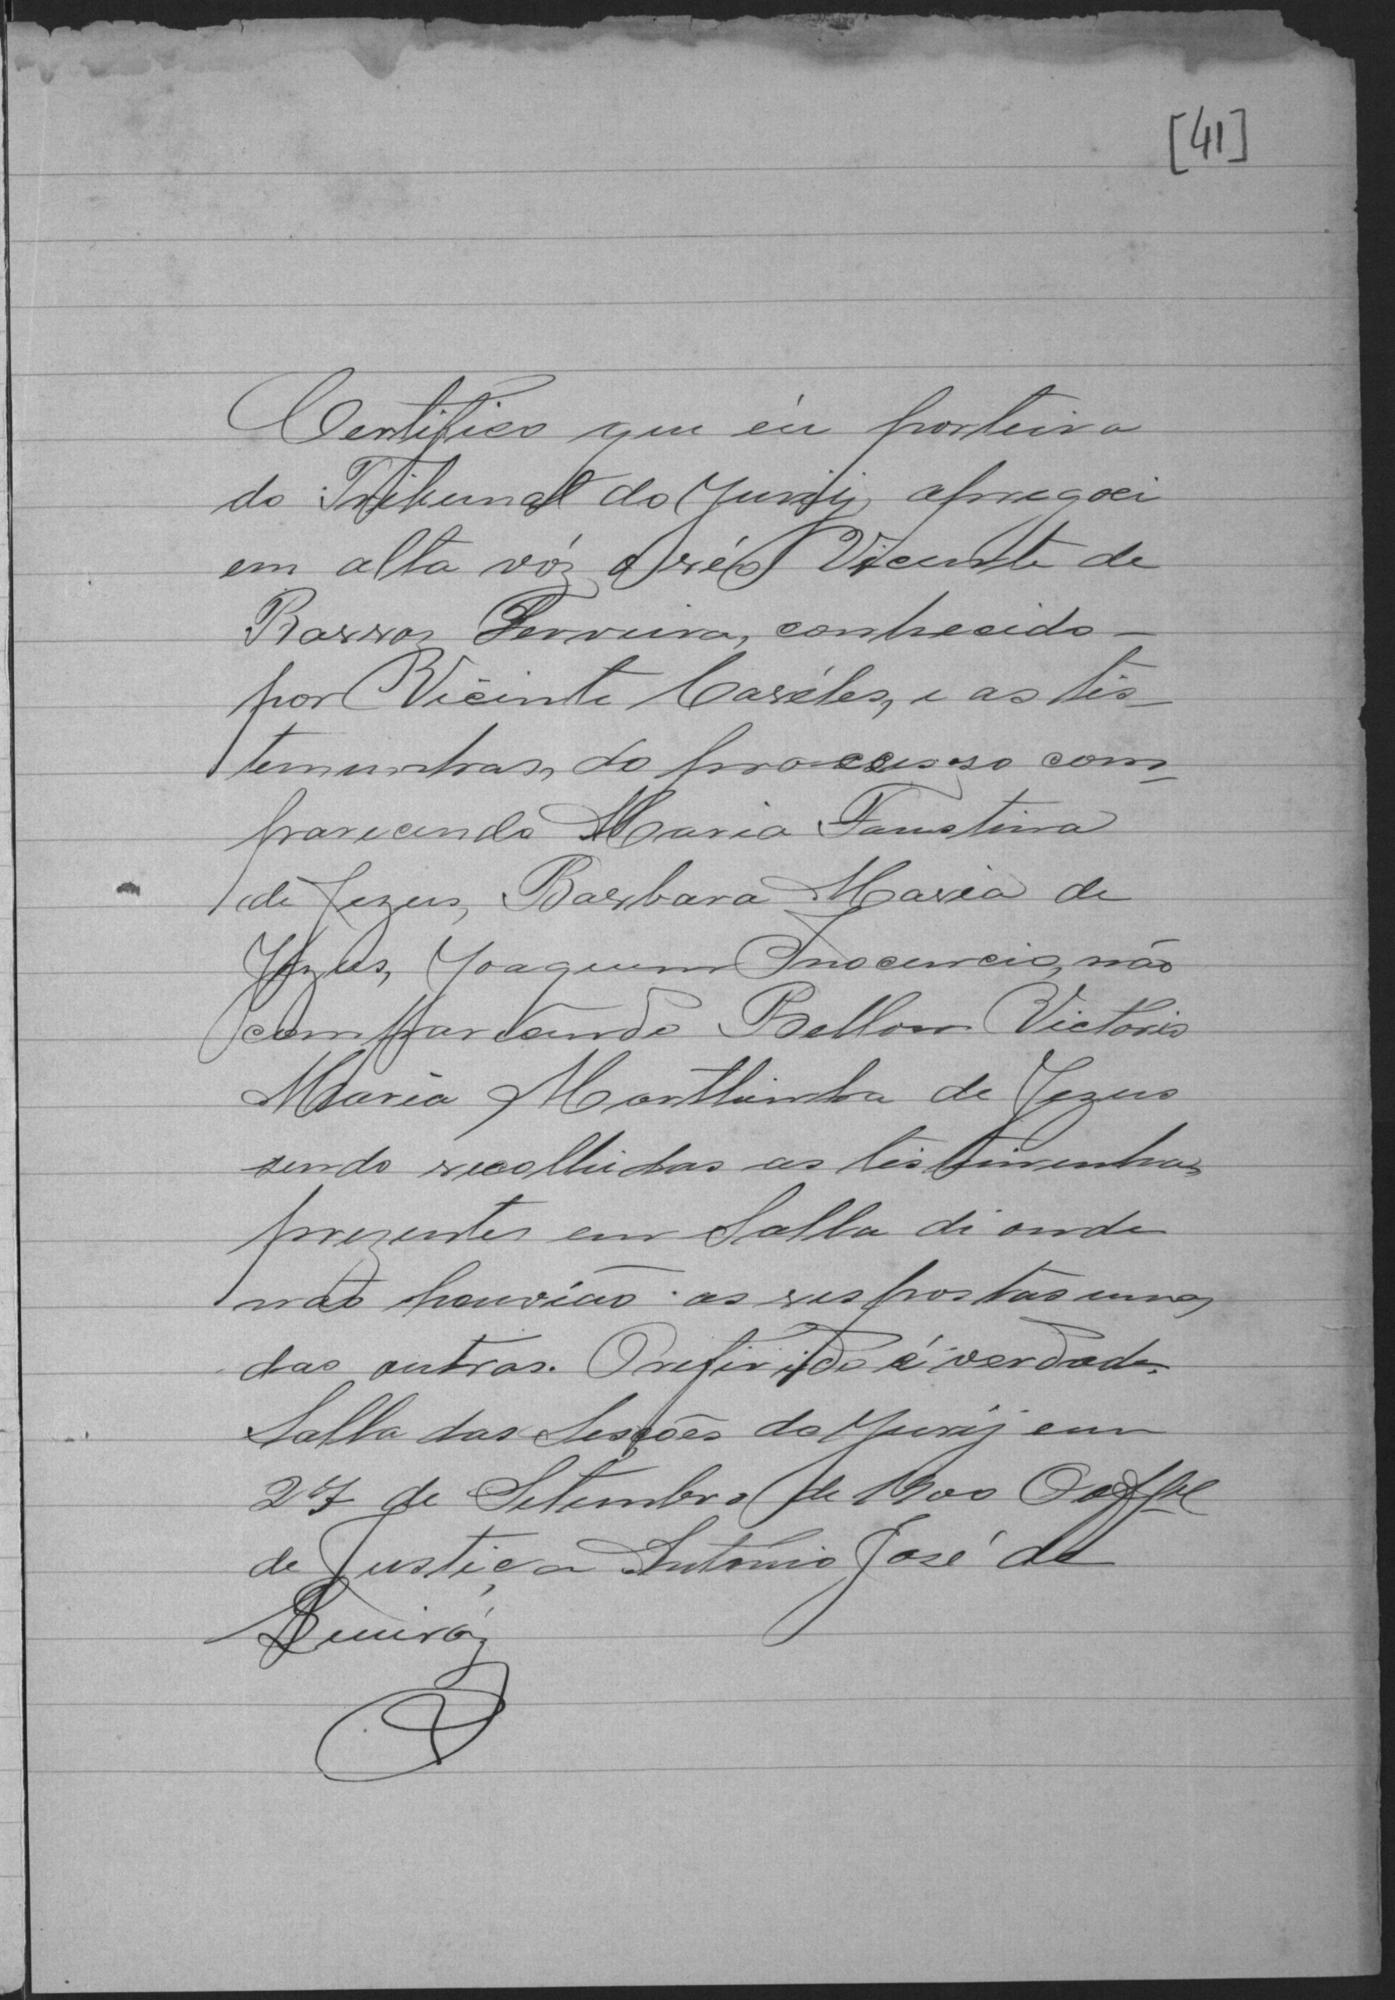 [41]
Certifico que eu porteiro
do Tribunal do Jury, apregoei
em alta vóz o réo Vicente de
Barros Ferreira, conhecido
por Vicente Caréles, e as tes-
temunhas, do processo com-
parecendo Maria Faustina
de Jezus, Barbara Maria de
Jezus, Joaquim Inocencio, não
comparecendo Victoris
Maria de Jezus
sendo recolhidas as testimunhas
prezentes em Salla di onde
não houvião as respostas umas
das outras. O referido é verdade.
Salla das Sessões do Jury em
27 de Setembro de 1900 O Offal
de Justiça Antonio José de
Queiróz